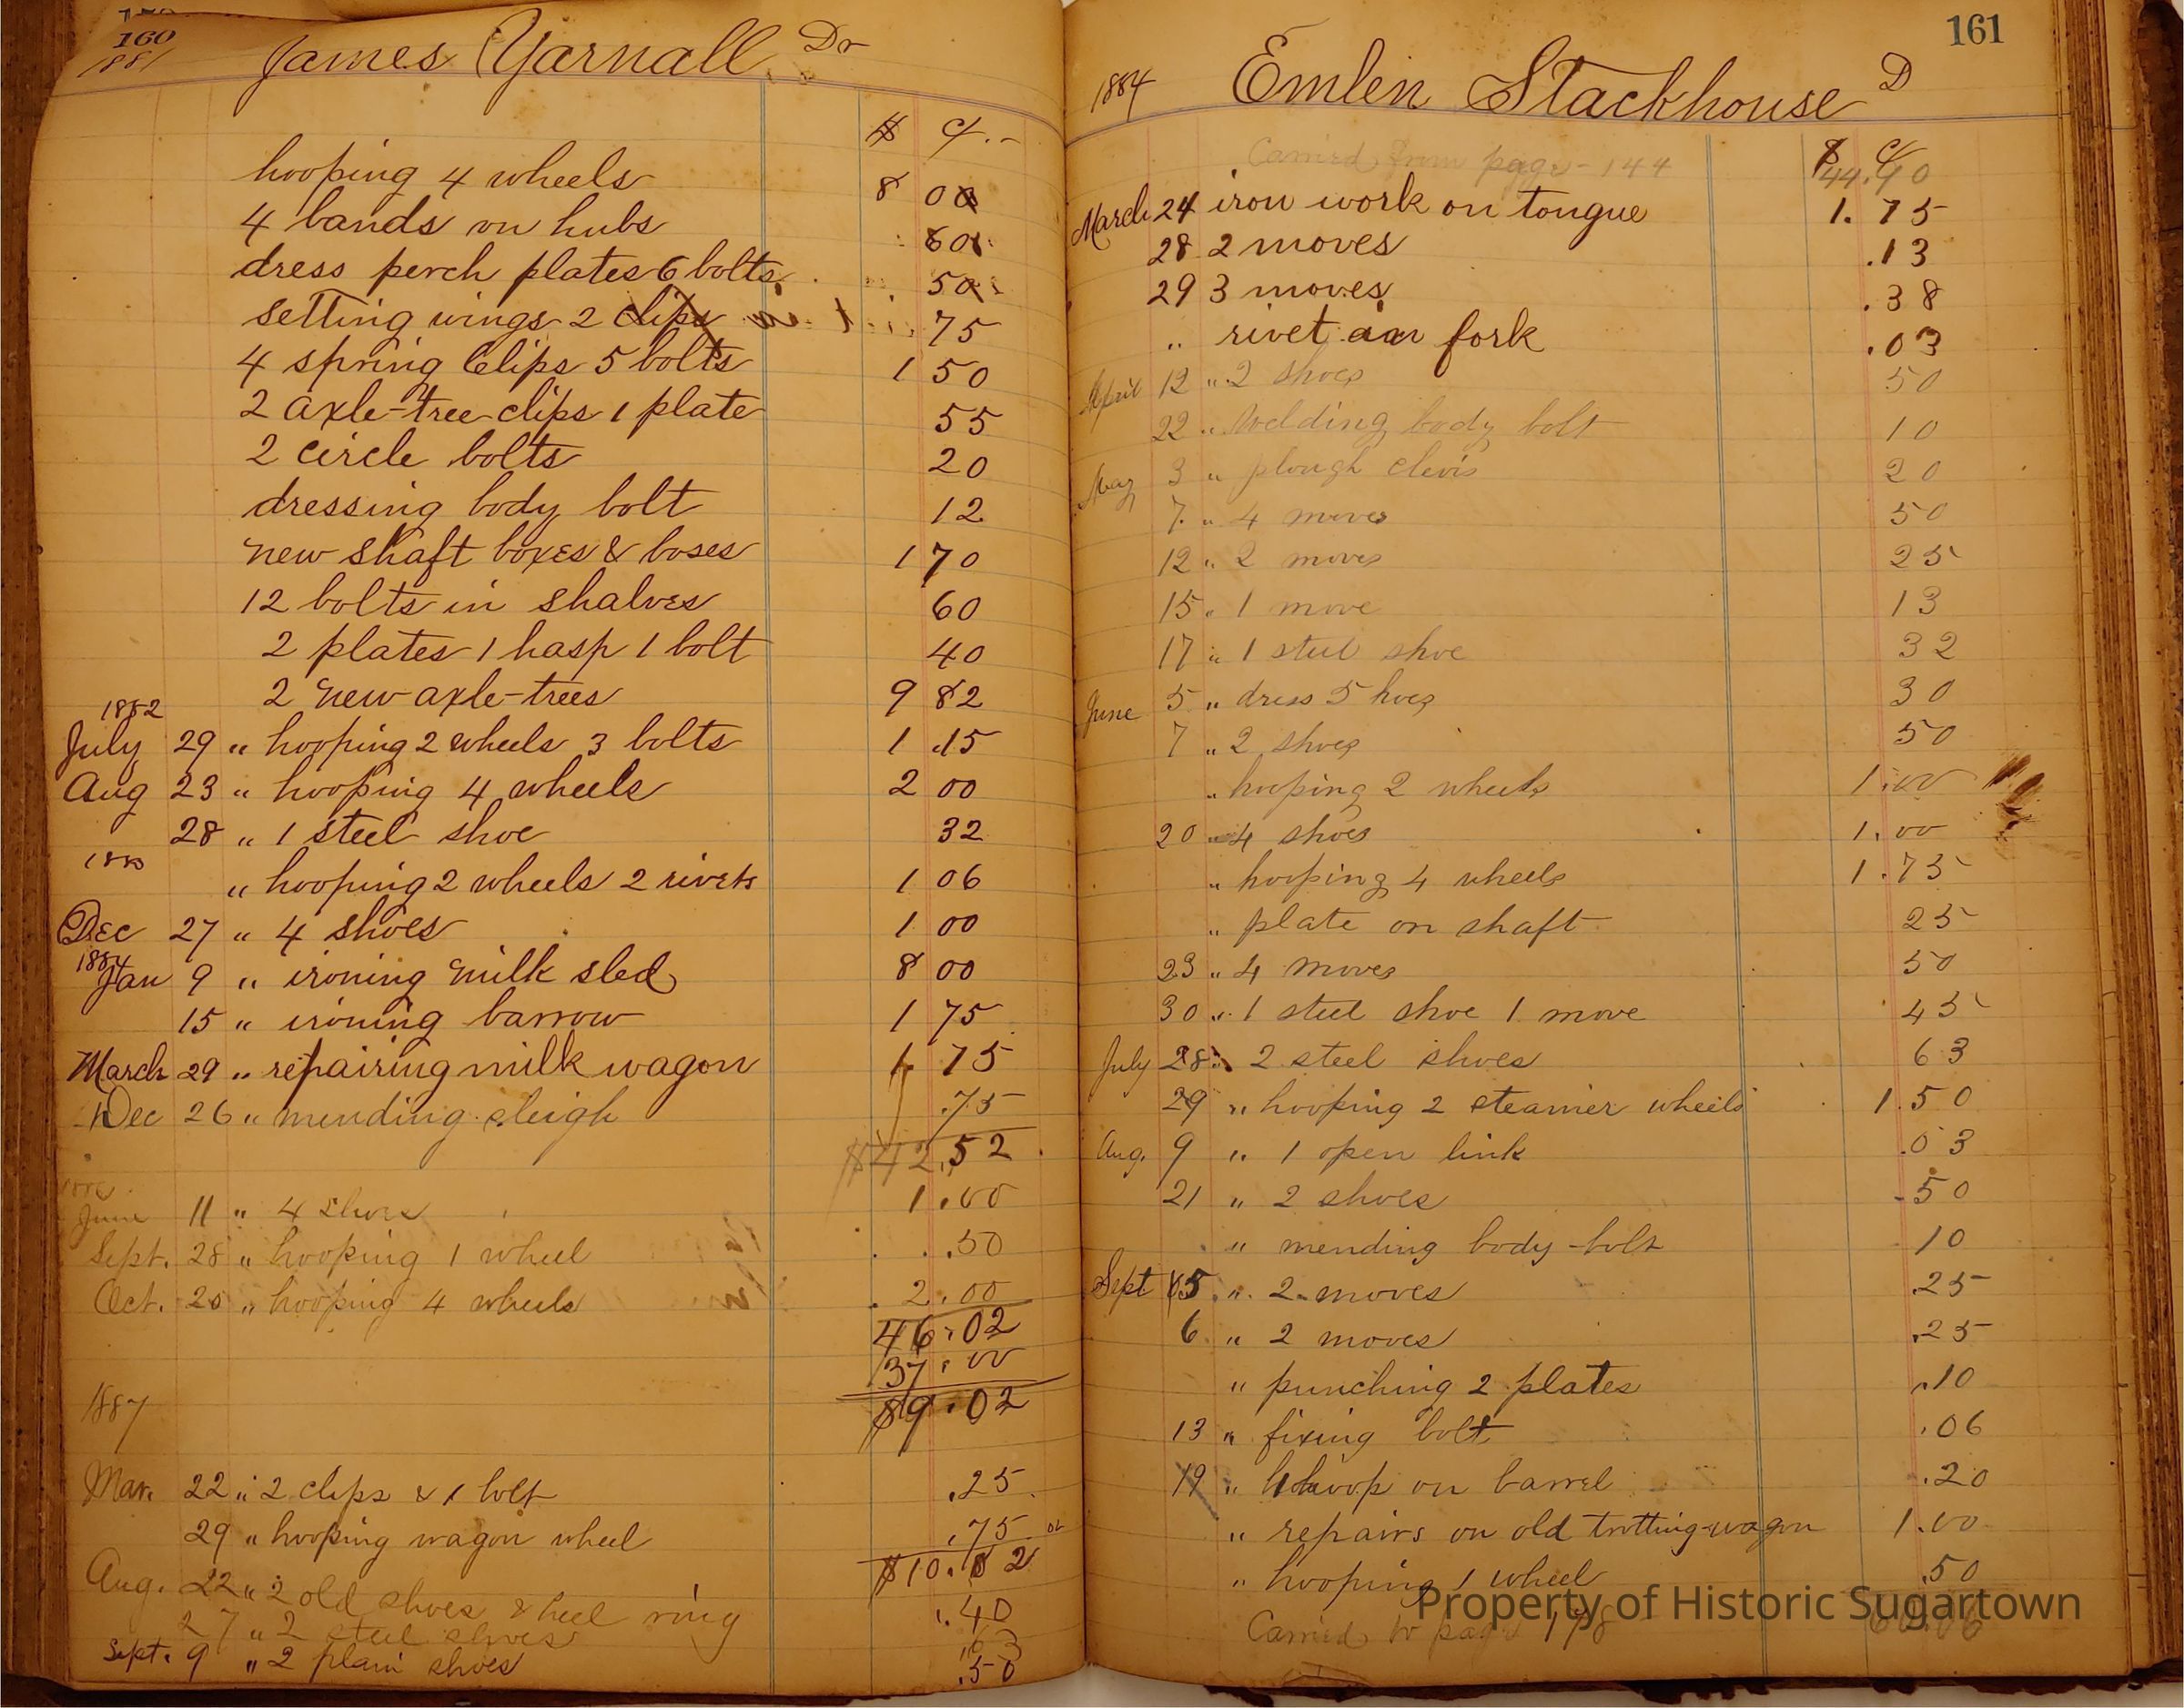 160
1881
James Yarnall Dr
$ c/.-
hooping 4 wheels 8 00
4 bands on hubs 60
dress perch plates 6 bolts 50
setting wings 2 clips 75
4 spring Clips 5 bolts 1 50
2 axle-tree clips 1 plate 55
2 circle bolts 20
dressing body bolt 12
new shaft boxes & boses 1 70
12 bolts in shalves 60
2 plates 1 hasp 1 bolt 40
2 new axle-trees 9 82
1882
July 29 " hooping 2 wheels 3 bolts 1 15
Aug 23 " hooping 4 wheels 2 00
28 " 1 steel shoe 32
" hooping 2 wheels 2 rivets 1 06
Dec 27 " 4 shoes 1 00
1884
Jan 9 " ironing milk sled 8 00
15 " ironing barrow 1 75
March 29 " repairing milk wagon 1 75
Dec 26 " mending sleigh .75
$42.52
June 11 " 4 shoes 1.00
Sept. 28 " hooping 1 wheel .50
Oct. 20 " hooping 4 wheels 2.00
46.02
37.00
$9.02
1887
Mar. 22 " 2 clips & 1 bolt .25
29 " hooping wagon wheel .75
$10.02
Aug. 22 " 2 old shoes & heel ring .40
27 " 2 steel shoes .63
Sept. 9 " 2 plain shoes .50
161
1884 Emlen Stackhouse D
$ c/
Carried from page - 144 44.90
March 24 iron work on tongue 1.75
28 2 moves .13
29 3 moves .38
" rivet in fork .03
April 12 " 2 shoes 50
22 " welding body bolt 10
May 3 " plough clevis 20
7 " 4 moves 50
12 " 2 moves 25
15 " 1 move 13
17 " 1 steel shoe 32
June 5 " dress 5 hoes 30
7 " 2 shoes 50
" hooping 2 wheels 1.00
20 " 4 shoes 1.00
" hooping 4 wheels 1.75
" plate on shaft 25
23 " 4 moves 50
30 " 1 steel shoe 1 move 45
July 28 " 2 steel shoes 63
29 " hooping 2 steamer wheels 1.50
Aug. 9 " 1 open link .03
21 " 2 shoes .50
" mending body-bolt 10
Sept 5 " 2 moves .25
6 " 2 moves .25
" punching 2 plates .10
13 " fixing bolt .06
19 " 1 hoop on barrel .20
" repairs on old trotting-wagon 1.00
" hooping 1 wheel .50
Carried to page 178
Property of Historic Sugartown